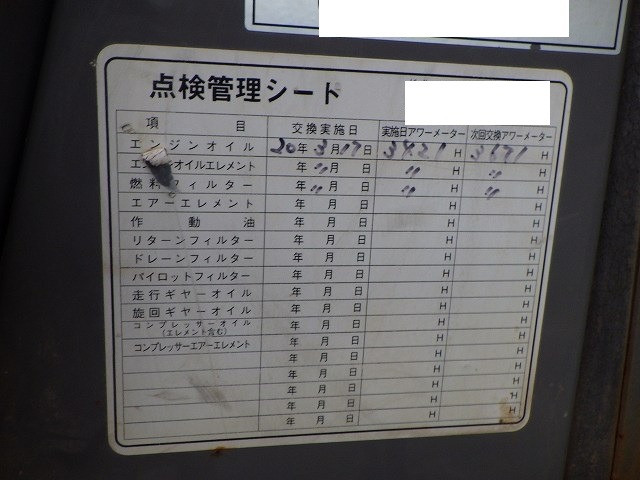 点検管理シート
項目 交換実施日 実施日アワーメーター 次回交換アワーメーター
エンジンオイル 20年3月17日 3421H 3671H
エンジンオイルエレメント 年〃月日 〃H 〃H
燃料フィルター 年〃月日 〃H 〃H
エアーエレメント 年月日 H H
作動油 年月日 H H
リターンフィルター 年月日 H H
ドレーンフィルター 年月日 H H
パイロットフィルター 年月日 H H
走行ギヤーオイル 年月日 H H
旋回ギヤーオイル 年月日 H H
コンプレッサーオイル
(エレメント含む) 年月日 H H
コンプレッサーエアーエレメント 年月日 H H
年月日 H H
年月日 H H
年月日 H H
年月日 H H